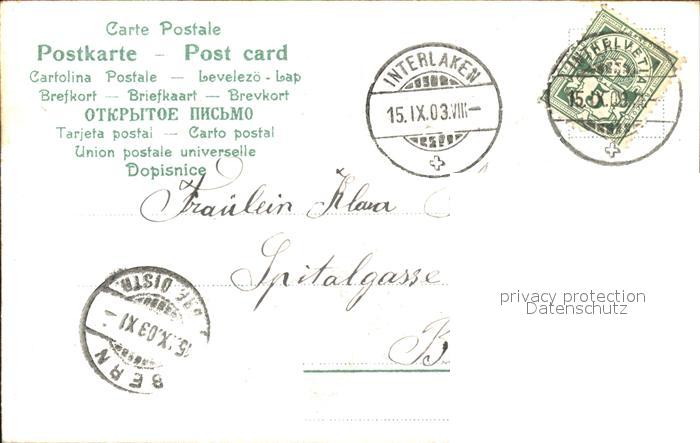 Carte Postale
Postkarte — Post card
Cartolina Postale — Levelezö-Lap
Brefkort — Briefkaart — Brevkort
ОТКРЫТОЕ ПИСЬМО
Tarjeta postal — Carto postal
Union postale universelle
Dopisnice
INTERLAKEN
15.IX.03.VIII—
HELVETIA
15.IX.03.
Fraülein Klara
Spitalgasse
B
privacy protection
Datenschutz
DISTR.
15.IX.03.XI—
BERN